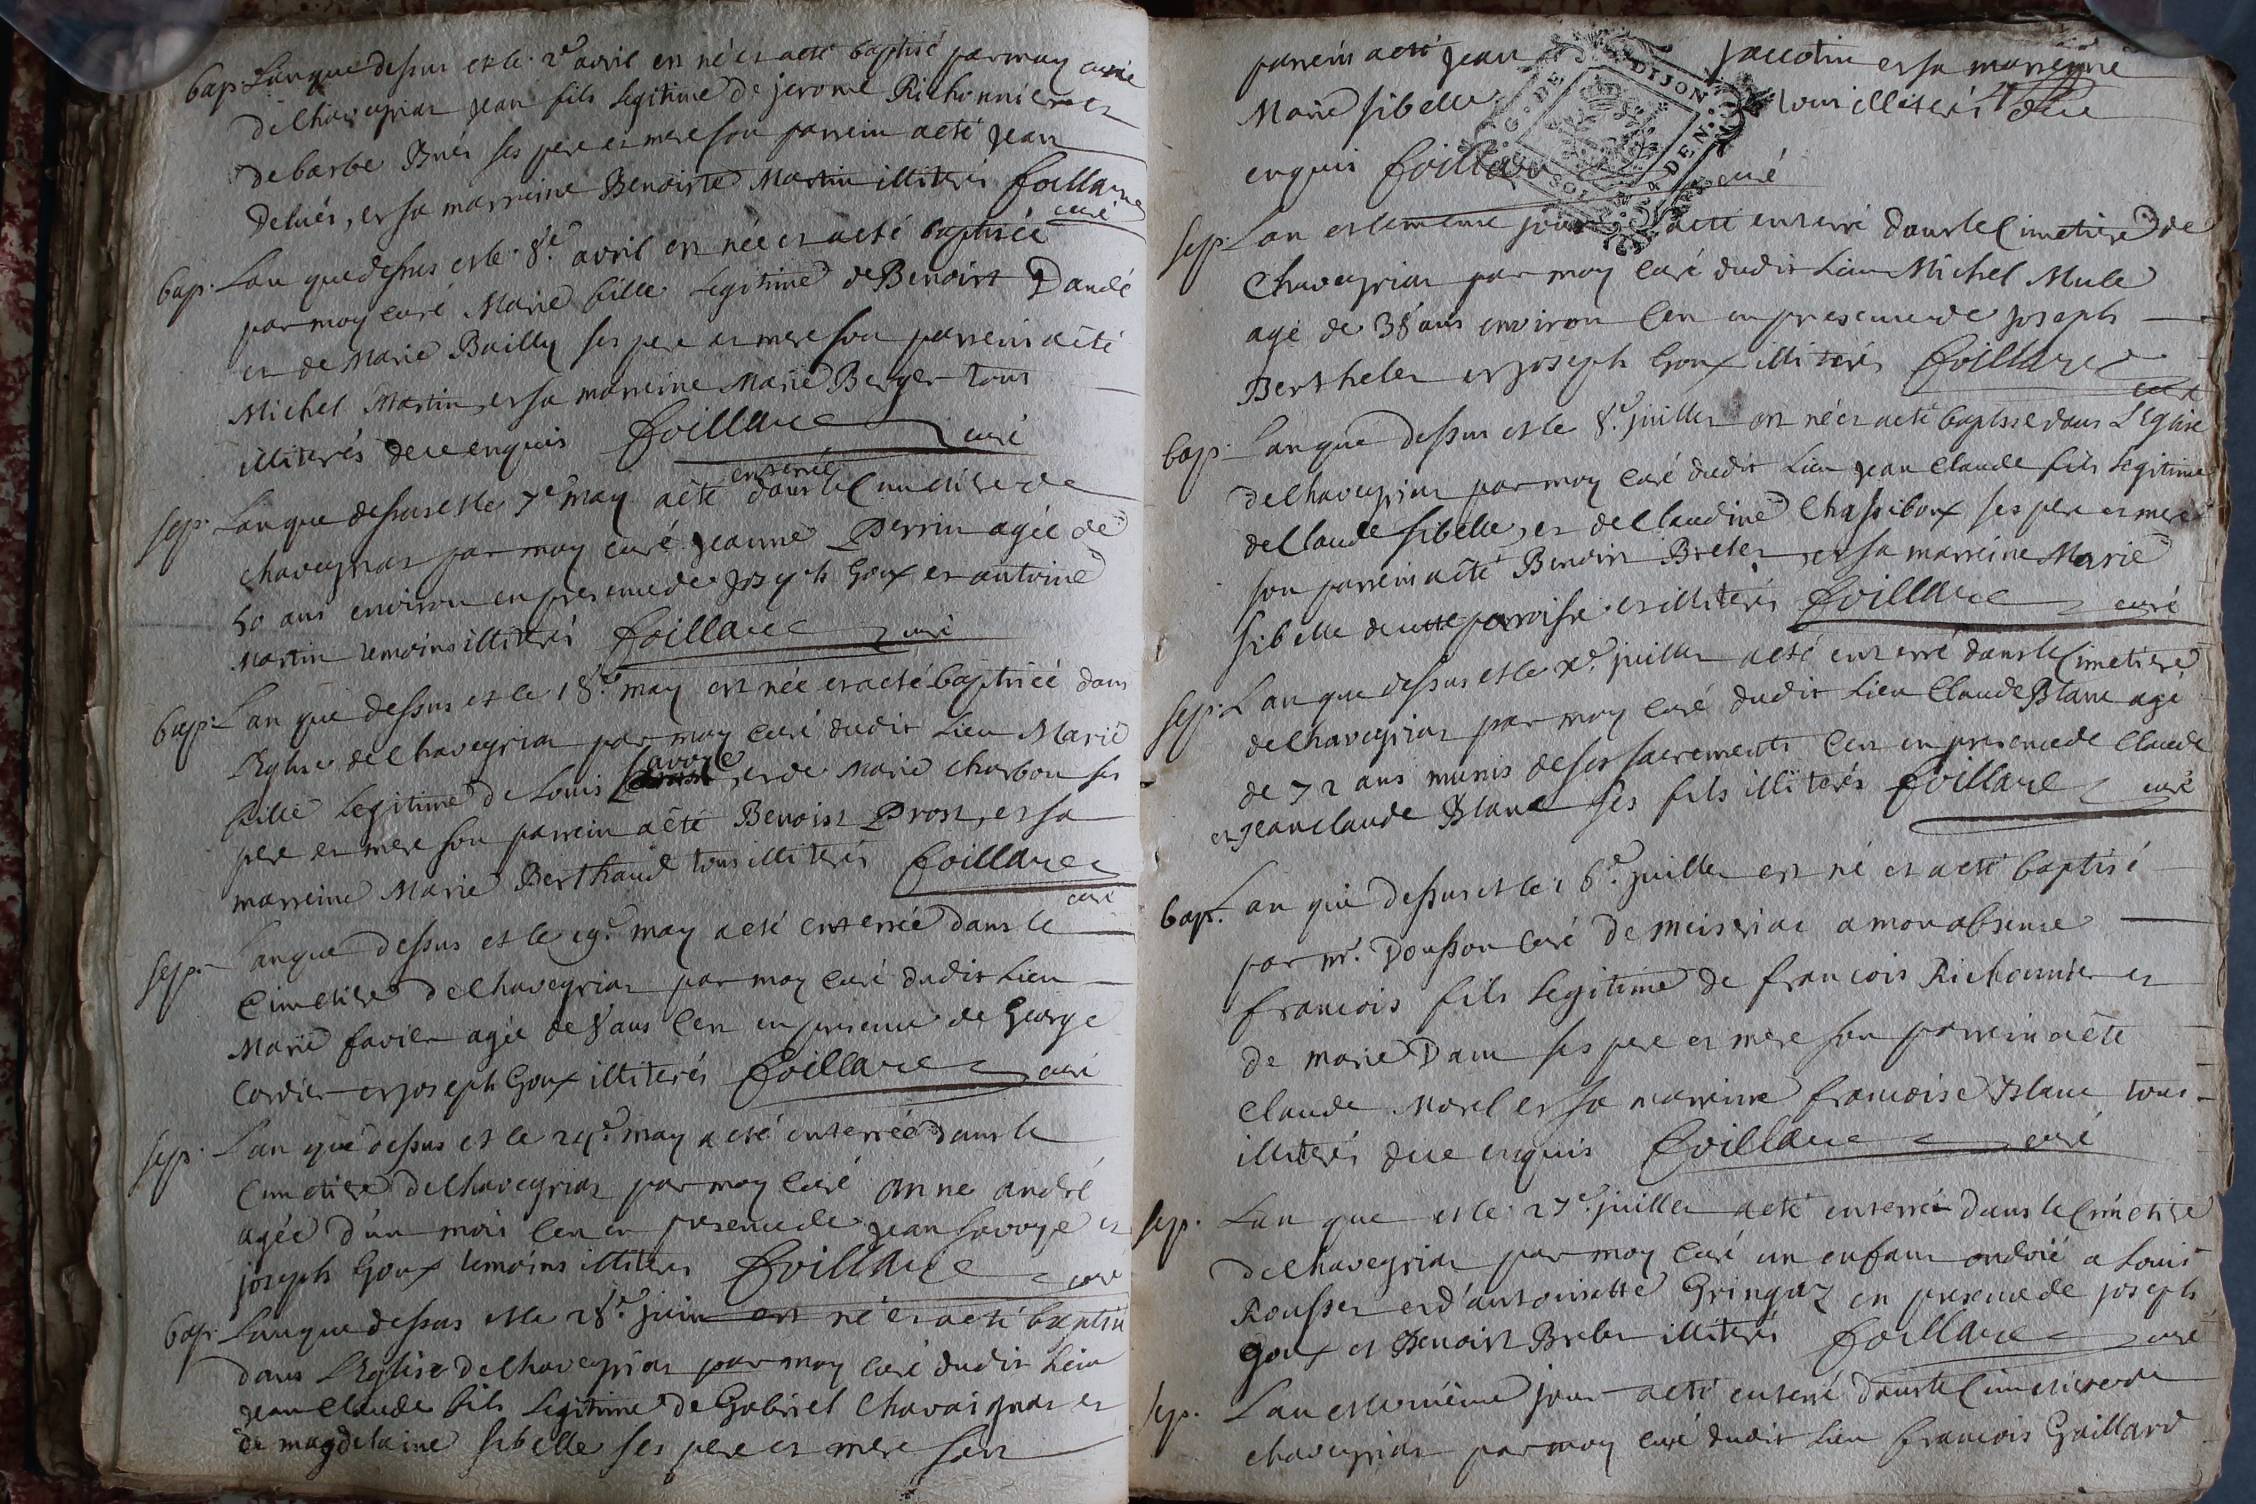 bap. Lan que dessus et le 2e avril est né et a eté baptisé par moy curé
de chaveyriat jean fils legitime de jerome Richonnier et
de barbe Bués ses pere et mere son parrein a eté jean
et sa marreine Benoiste Martin illiterés foillare
curé
bap. Lan que dessus et le 8e. avril est née et a eté baptisée
par moy curé Marie fille legitime de Benoist Dandé
et de Marie Bailly ses pere et mere son parrein a eté
Michel Martin et sa marreine Marie Berger tous
illiterés de ce enquis foillare curé
enterrée
sep. Lan que dessus et le 7e may a eté dans le Cimetiere de
chaveyriat par moy curé jeanne Perrin agée de
50 ans environ en presence de joseph Goux et antoine
Martin temoins illiterés foillare curé
bap. Lan que dessus et le 18e. may est née et a eté baptisée dans
l'Eglise de Chaveyriat par moy curé dudit Lieu Marie
fille legitime de Louis Savoye, et de Marie charbon ses
pere et mere son parrein a eté Benoist Prost, et sa
marreine Marie Berthaud tous illiterés foillare
curé
sep. Lan que dessus et le 19e. may a eté enterrée dans le
Cimetiere de Chaveyriat par moy curé dudit Lieu
Marie favier agée de 8 ans Cen en presence de George
Cordier et joseph Goux illiterés foillare curé
sep. Lan que dessus et le 29e. may a eté enterrée dans le
Cimetiere de Chaveyriat par moy curé anne andré
agée d'un mois Cen en presence de jean Savoye et
joseph Goux temoins illiterés foillare curé
bap. Lan que dessus et le 28e. juin est né et a eté baptisé
dans l'Eglise de Chaveyriat par moy curé dudit Lieu
jean Claude fils legitime de Gabriel Chavaignat et
de magdelaine sibelle ses pere et mere son
parrein a eté jean jaccotin et sa marreine
Marie sibelle tous illiterés de ce
enquis foillare curé
G. DE DIJON
SOL 4 DEN.
sep. Lan et le meme jour a eté enterré dans le Cimetiere de
Chaveyriat par moy curé dudit Lieu Michel Mule
agé de 38 ans environ Cen en presence de joseph
Berthelet et joseph Goux illiterés foillare
curé
bap. Lan que dessus et le 8e. juillet est né et a eté baptisé dans l'Eglise
de Chaveyriat par moy curé dudit Lieu jean Claude fils legitime
de Claude sibelle, et de Claudine Chassiboux ses pere et mere
son parrein a eté Benoist Brelet et sa marreine Marie
sibelle de cette parroisse et illiterés foillare curé
sep. Lan que dessus et le xe. juillet a eté enterré dans le Cimetiere
de Chaveyriat par moy curé dudit Lieu Claude Blanc agé
de 72 ans munis de ses sacrements Cen en presence de Claude
et jean claude Blanc ses fils illiterés foillare curé
bap. Lan que dessus et le 16e. juillet est né et a eté baptisé
par mr. Dousson curé de meiseriat a mon absence
francois fils legitime de francois Richonnier et
de marie Dam ses pere et mere son parrein a eté
Claude Morel et sa marreine francoise Blanc tous
illiterés de ce enquis foillare curé
sep. Lan que et le 27e. juillet a eté enterré dans le Cimetiere
de Chaveyriat par moy curé un enfant ondoié a Louis
Rousset et d'antoinette Gringoz en presence de joseph
Goux et Benoist Brelet illiterés foillare curé
sep. Lan et le même jour a eté enterré dans le Cimetiere de
chaveyriat par moy curé dudit Lieu francois Gaillard